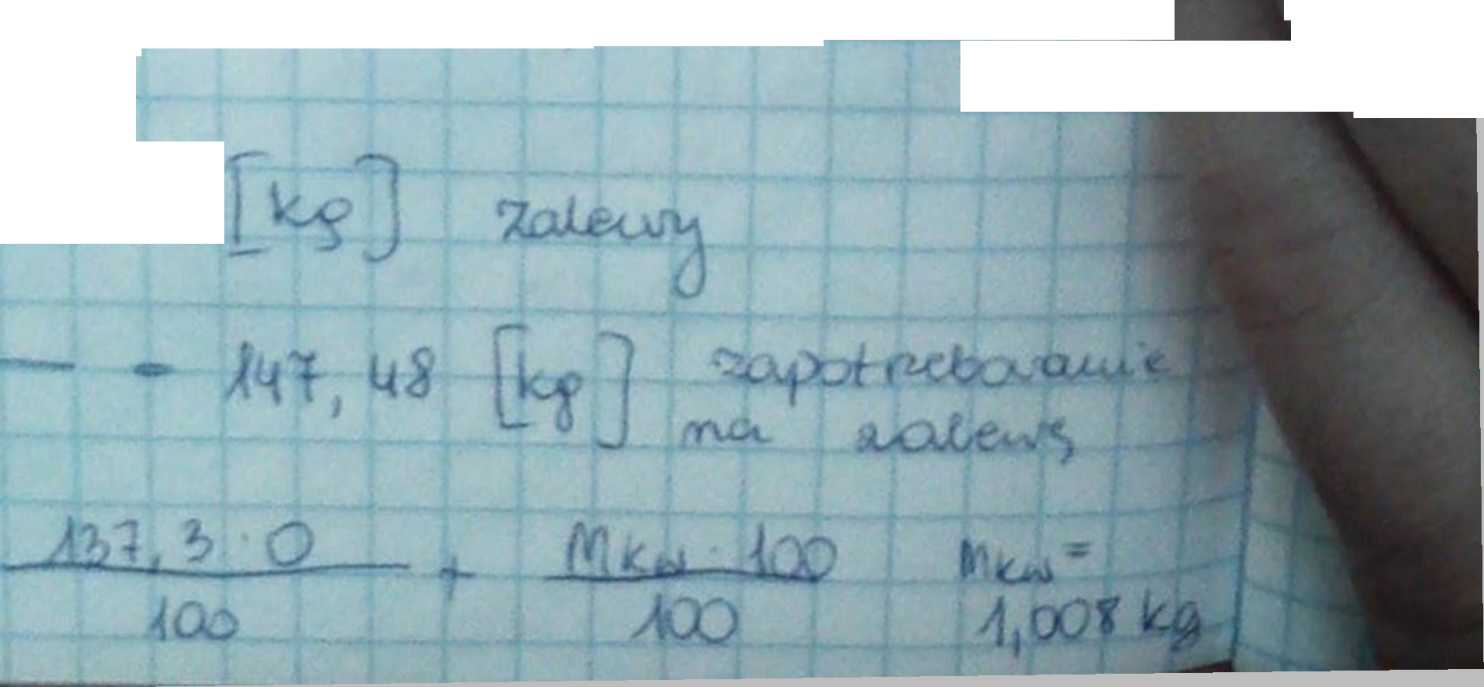 [kg] zalewy
- = 147,48 [kg] zapotrzebowanie
na zalewę
137,3 · 0 / 100 + Mkw · 100 / 100 Mkw =
1,008 kg